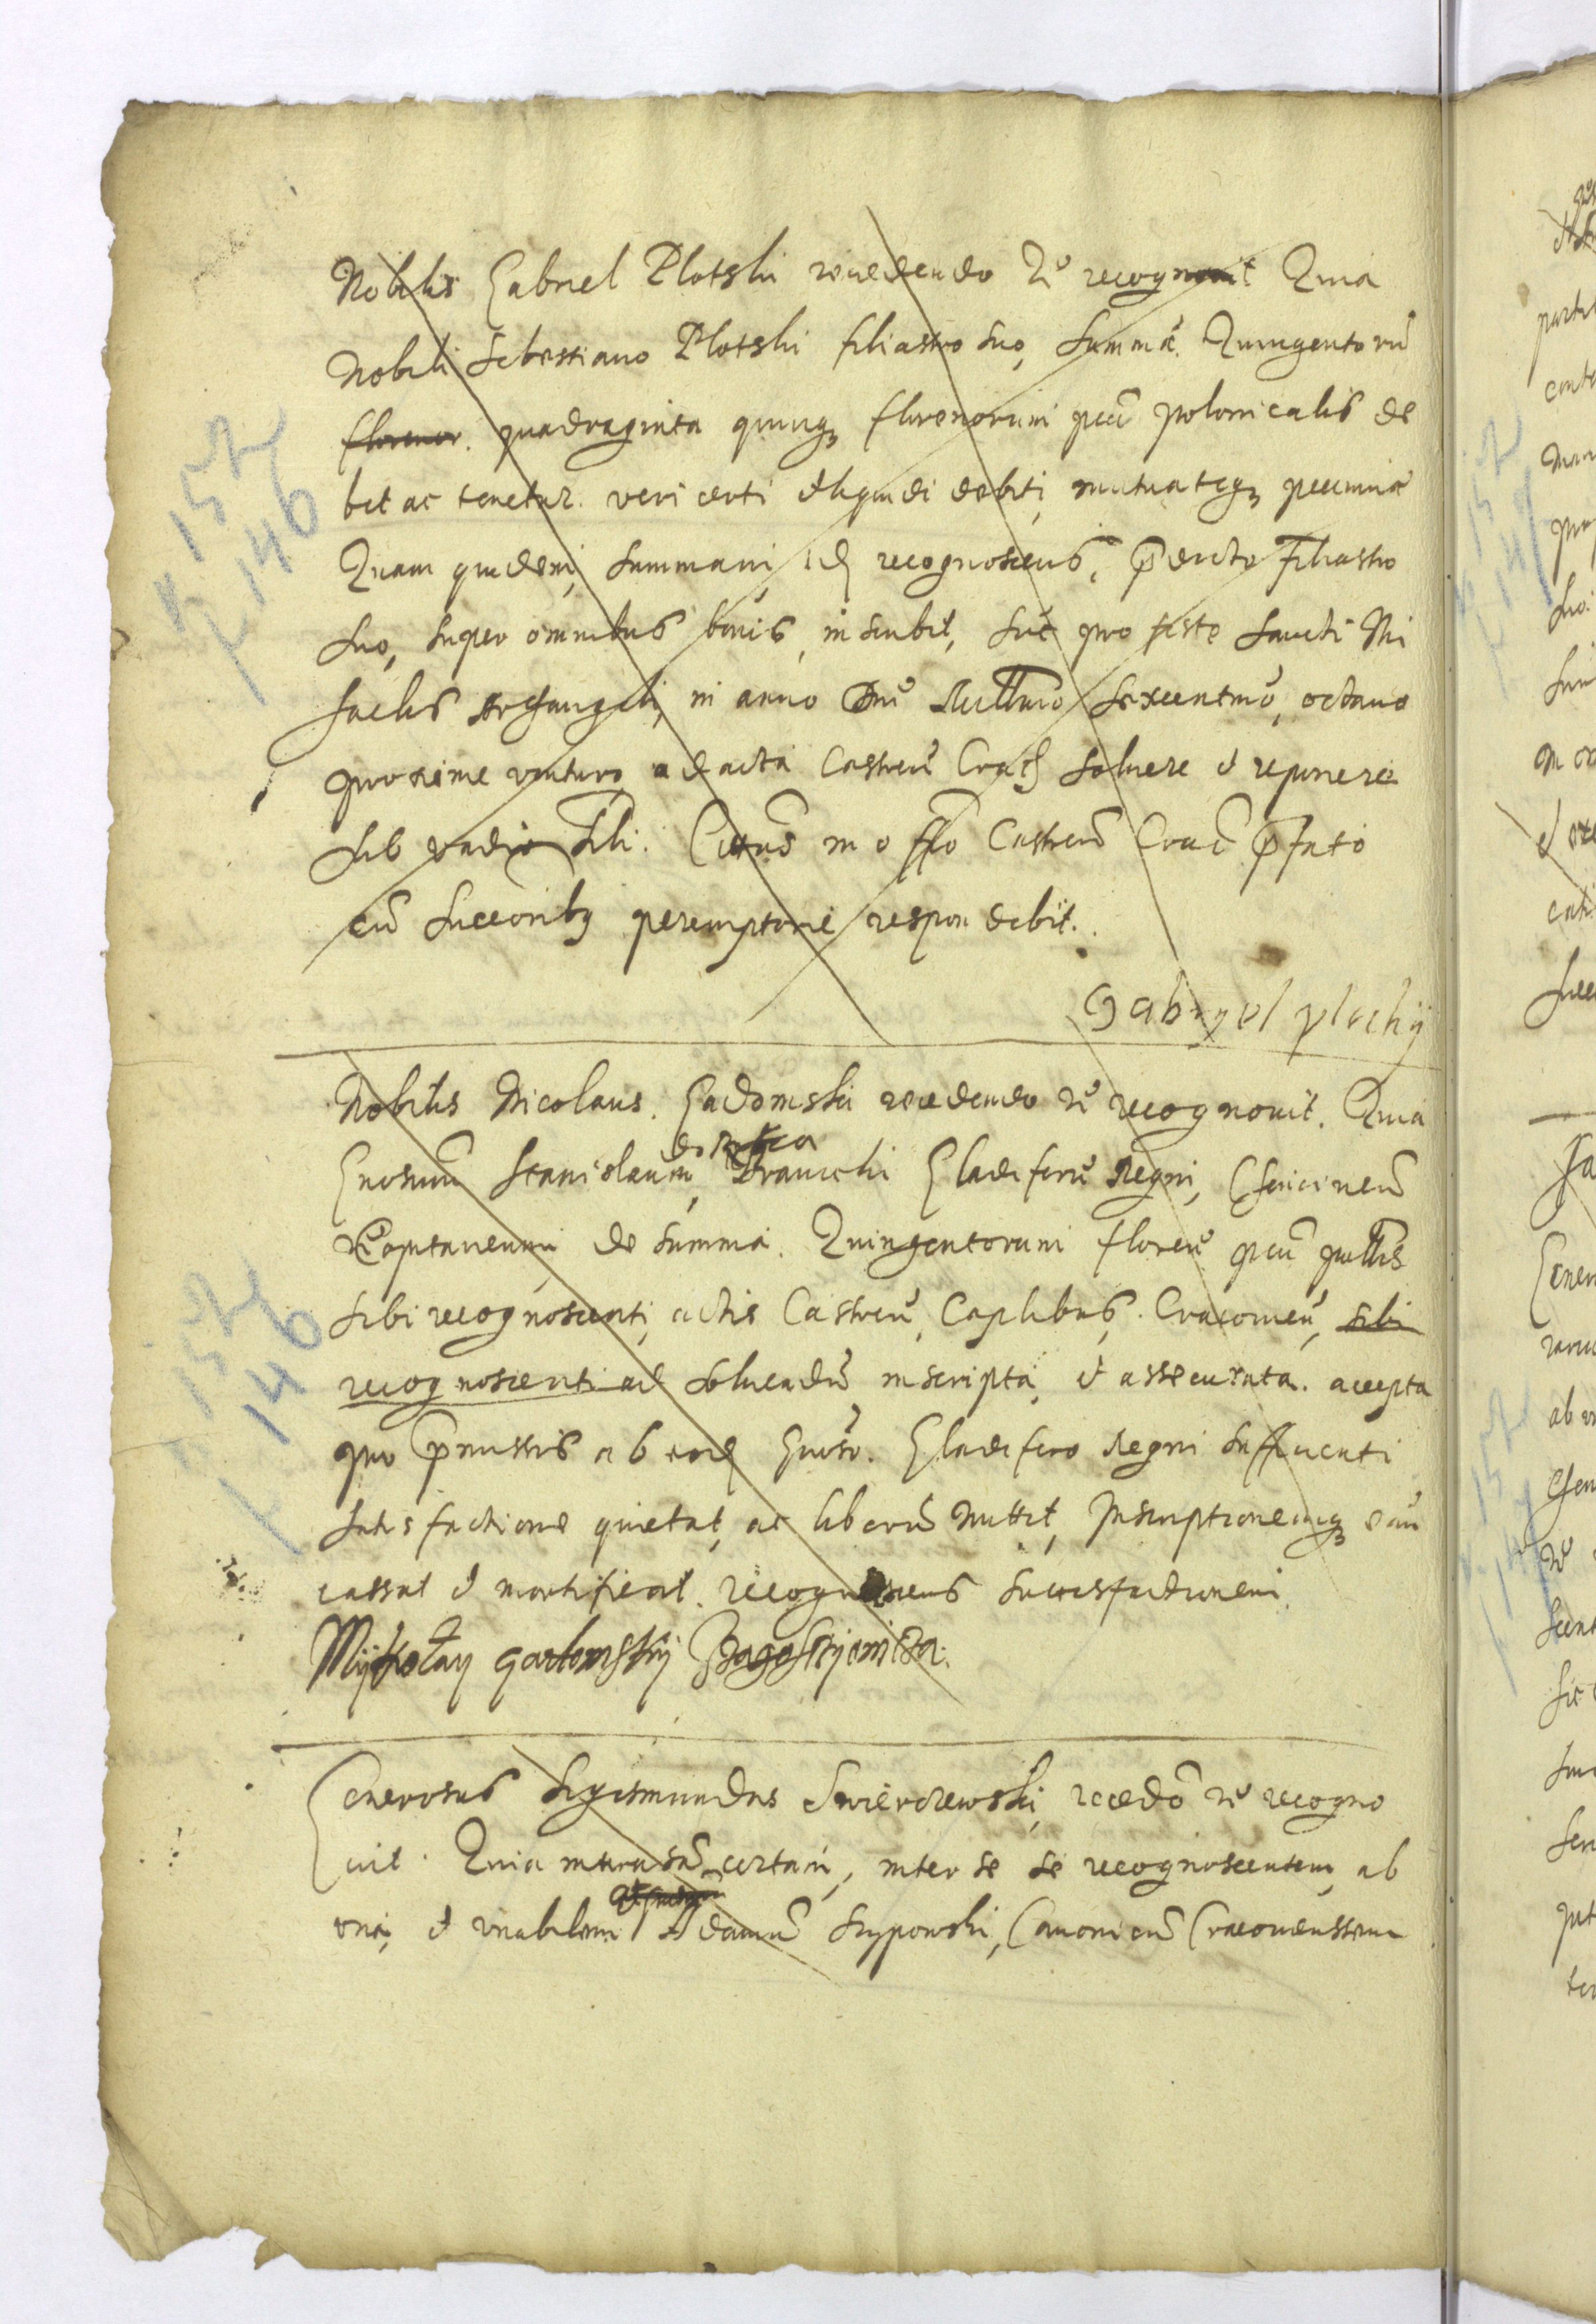 Nobilis Gabriel Plotski recedendo rē recognouit Quia
Nobili Sebastiano Plotski filiastro suo, summā. Quingentorū
florenor. quadraginta quinqȝ florenorum pecū polonicalis de
bet ac tenetur. veri certi et liquidi debiti, mutuateqȝ pecuniæ
Quam quidem, summam, idȝ recognoscens, p̄dicto filiastro
suo, super omnibus bonis, inscribit, suis pro festo Sancti Mi
chaelis Archangeli, in anno Dni Millmo sexcentmo, octauo
proxime venturo, ad acta Castreñ Cracȝ soluere et reponere
sub vadio sĩli. Citatus in offo Castreñ Crac̄ p̄fato
cū succoribȝ peremptorie respondebit.
Gabryel plocky
Nobilis Nicolaus. Gadomski recedendo rē recognouit. Quia
Gnosum Stanislaum, Branicki Gladiferū Regni, Chenicineñ
Capitaneum de summa. Quingentorum floreñ pecū pollis
sibi recognoscenti, actis Castreñ, Caplibus. Cracouieñ, sibi
recognoscenti ad soluendū inscripta, et assecurata. accepta
pro p̄missis ab eodȝ Gnoso. Gladifero Regni sufficienti
satisfactione quietat, ac liberū mittit, Inscriptionemqȝ eam
cassat et mortificat. recognoscens satisfactionem.
Mykołay gadomsky
Generosus Sigismundus Swierczewski, recedō rē recogno
uit. Quia certam, inter se se recognoscentem, ab
vna, et vnabilem Adamū Skrypowski, Canonicū Cracouiensem
1572
146
1572
146